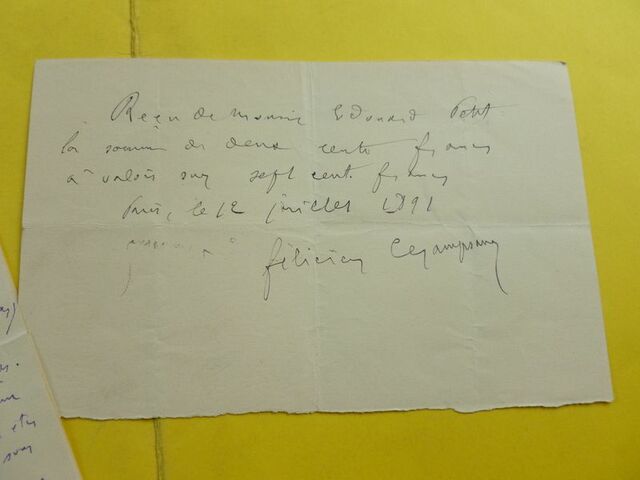 Reçu de Monsieur Edouard Petit
la somme de deux cents francs
à valoir sur sept cent francs
Paris, le 12 juillet 1891
Félicien Champsaur